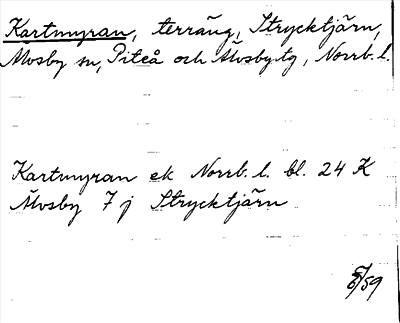 Kartmyran, terräng, Strycktjärn,
Älvsby sn, Piteå och Älvsby tg, Norrb. l.
Kartmyran ek Norrb. l. bl. 24 K
Älvsby 7 j Strycktjärn